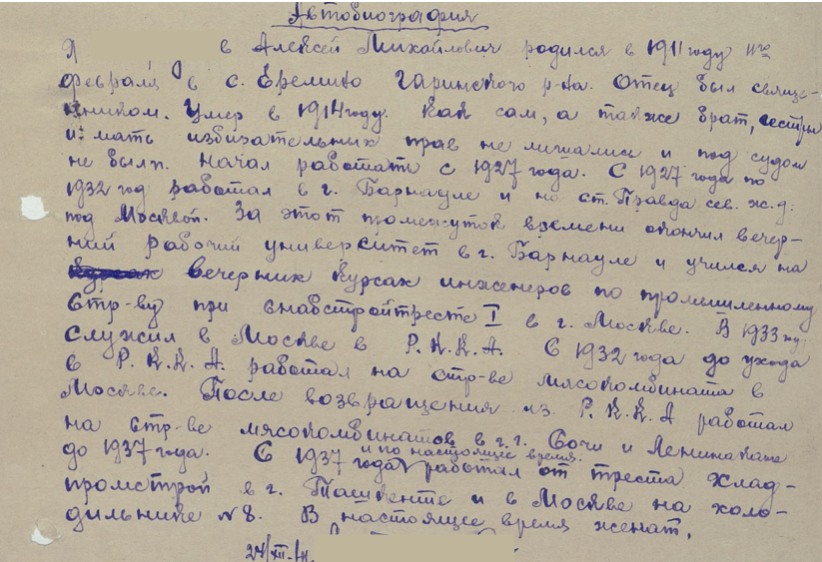 Автобиография
Я в Алексей Михайлович родился в 1911 году 11го
февраля в с. Еремино Гаринского р-на. Отец был свяще-
нником. Умер в 1914 году. Как сам, а также брат, сестры
и мать избирательных прав не лишались и под судом
не были. Начал работать с 1927 года. С 1927 года по
1932 год работал в г. Барнауле и на ст. Правда сев. ж.д.
под Москвой. За этот промежуток времени окончил вечер-
ний рабочий университет в г. Барнауле и учился на
вечерних курсах инженеров по промышленному
стр-ву при снабстройтресте I в г. Москве. В 1933 году
служил в Москве в Р.К.К.А. С 1932 года до ухода
в Р.К.К.А. работал на стр-ве мясокомбината в
Москве. После возвращения из Р.К.К.А работал
на стр-ве мясокомбинатов в г.г. Сочи и Ленинакане
до 1937 года. С 1937 года и по настоящее время работал от треста Хлад-
промстрой в г. Ташкенте и в Москве на холо-
дильнике №8. В настоящее время женат,